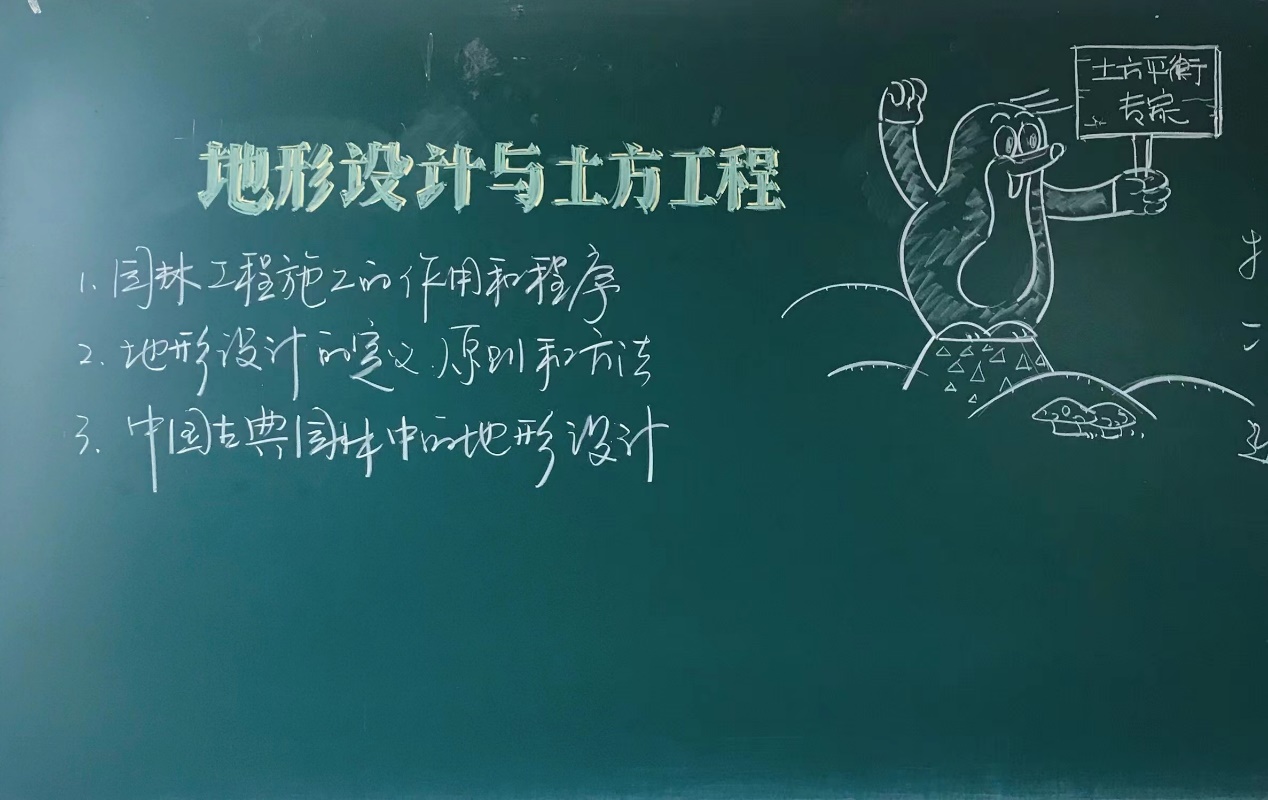 地形设计与土方工程
1. 园林工程施工的作用和程序
2. 地形设计的定义、原则和方法
3. 中国古典园林中的地形设计
土方平衡
专家